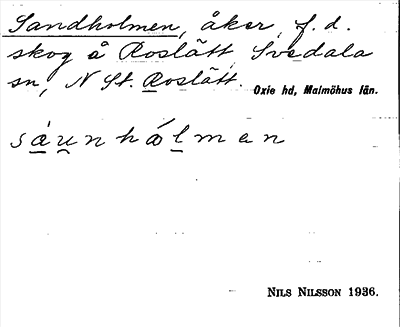 Sandholmen, åker, f. d.
skog å Roslätt, Svedala
sn, N St. Roslätt.
Oxie hd, Malmöhus län.
sáunhólmen
NILS NILSSON 1936.